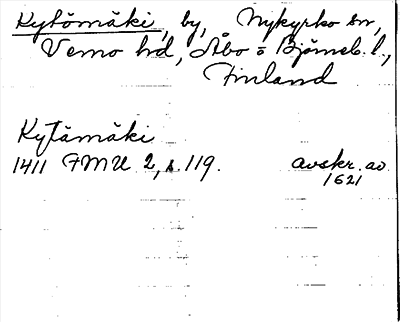 Kytömäki, by, Nykyrko sn,
Vemo hd, Åbo o Björneb. l.,
Finland
Kytämäki
1411 FMU 2, s. 119. avskr. av
1621